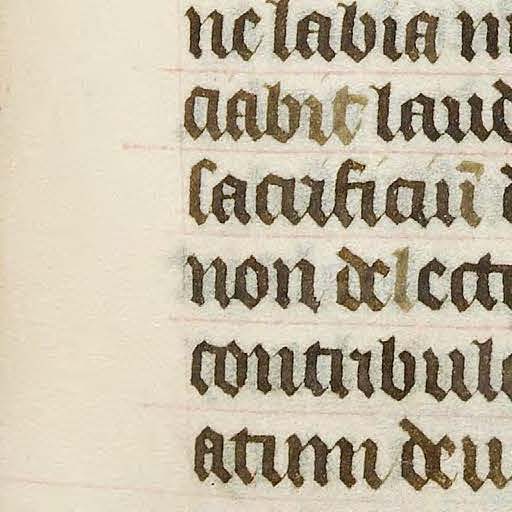 ne labia m
ciabit laud
sacrificiū d
non delecta
contribula
atum deu